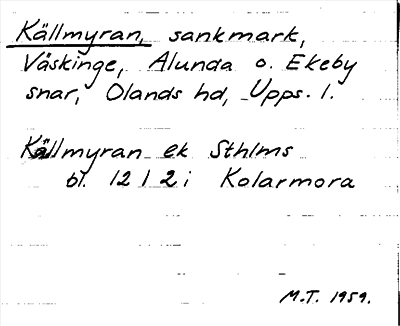 Källmyran, sankmark,
Våskinge, Alunda o. Ekeby
snar, Olands hd, Upps. l.
Källmyran ek Sthlms
bl. 12 1 2 i Kolarmora
M.T. 1959.